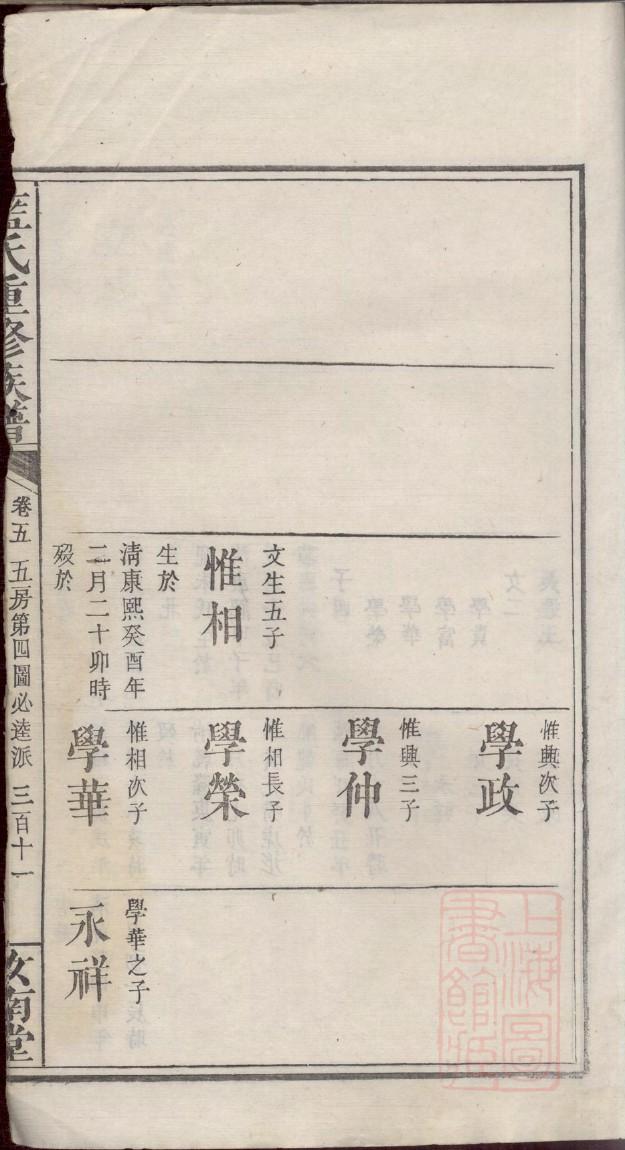 惟相
文生五子
生於
清康熙癸酉年
二月二十卯時
歿於
學政
惟興次子
學仲
惟興三子
學榮
惟相長子
學華
惟相次子
永祥
學華之子
藍氏重修族譜
卷五
五房第四圖必達派
三百十一
汝南堂
上海圖書館藏